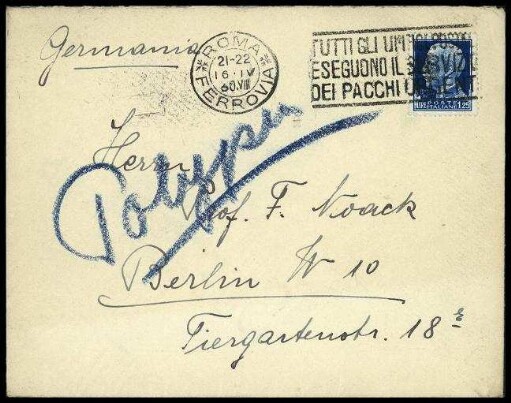 Germania
ROMA
21-22
16·IV
30.VIII
FERROVIA
TUTTI GLI
ESEGUONO IL
DEI PACCHI
POSTE ITALIANE
1,25
Herrn
Prof. F. Noack
Berlin W 10
Tiergartenstr. 18